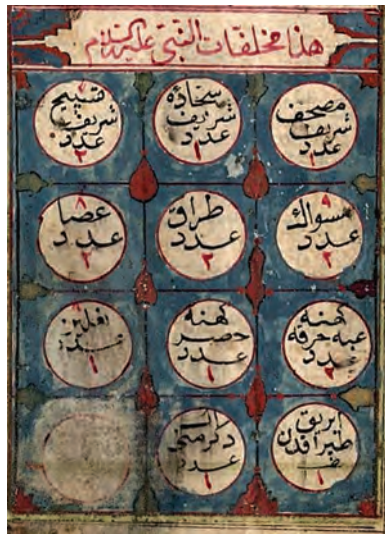 هذا مخلفات النبي عليه السلام
مصحف
شريف
عدد
١
سجاده
شريف
عدد
١
تسبيح
شريف
عدد
٢
مسواك
عدد
٢
طراق
عدد
٢
عصا
عدد
٢
كهنه
عبه خرقه
عدد
٢
كهنه
حصير
عدد
١
نعلين
١
ابريق
طپراقدن
١
ال
دكرمنى
عدد
١